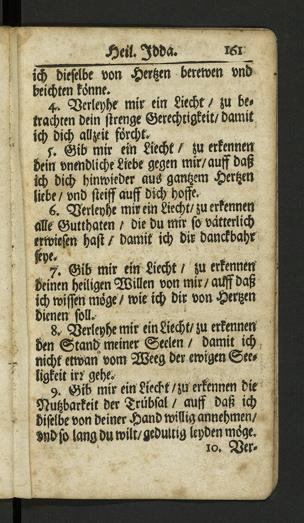 Heil. Idda. 161
ich dieselbe von Hertzen berewen vnd
beichten könne.
4. Verleyhe mir ein Liecht / zu be-
trachten dein strenge Gerechtigkeit / damit
ich dich allzeit förcht.
5. Gib mir ein Liecht / zu erkennen
dein vnendliche Liebe gegen mir / auff daß
ich dich hinwieder aus gantzem Hertzen
liebe / vnd steiff auff dich hoffe.
6. Verleyhe mir ein Liecht / zu erkennen
alle Gutthaten / die du mir so vätterlich
erwiesen hast / damit ich dir danckbahr
seye.
7. Gib mir ein Liecht / zu erkennen
deinen heiligen Willen von mir / auff daß
ich wissen möge / wie ich dir von Hertzen
dienen soll.
8. Verleyhe mir ein Liecht / zu erkennen
den Stand meiner Seelen / damit ich
nicht etwan vom Weeg der ewigen See-
ligkeit irr gehe.
9. Gib mir ein Liecht / zu erkennen die
Nutzbarkeit der Trübsal / auff daß ich
diselbe von deiner Hand willig annehmen /
vnd so lang du wilt / gedultig leyden möge.
10. Ver-